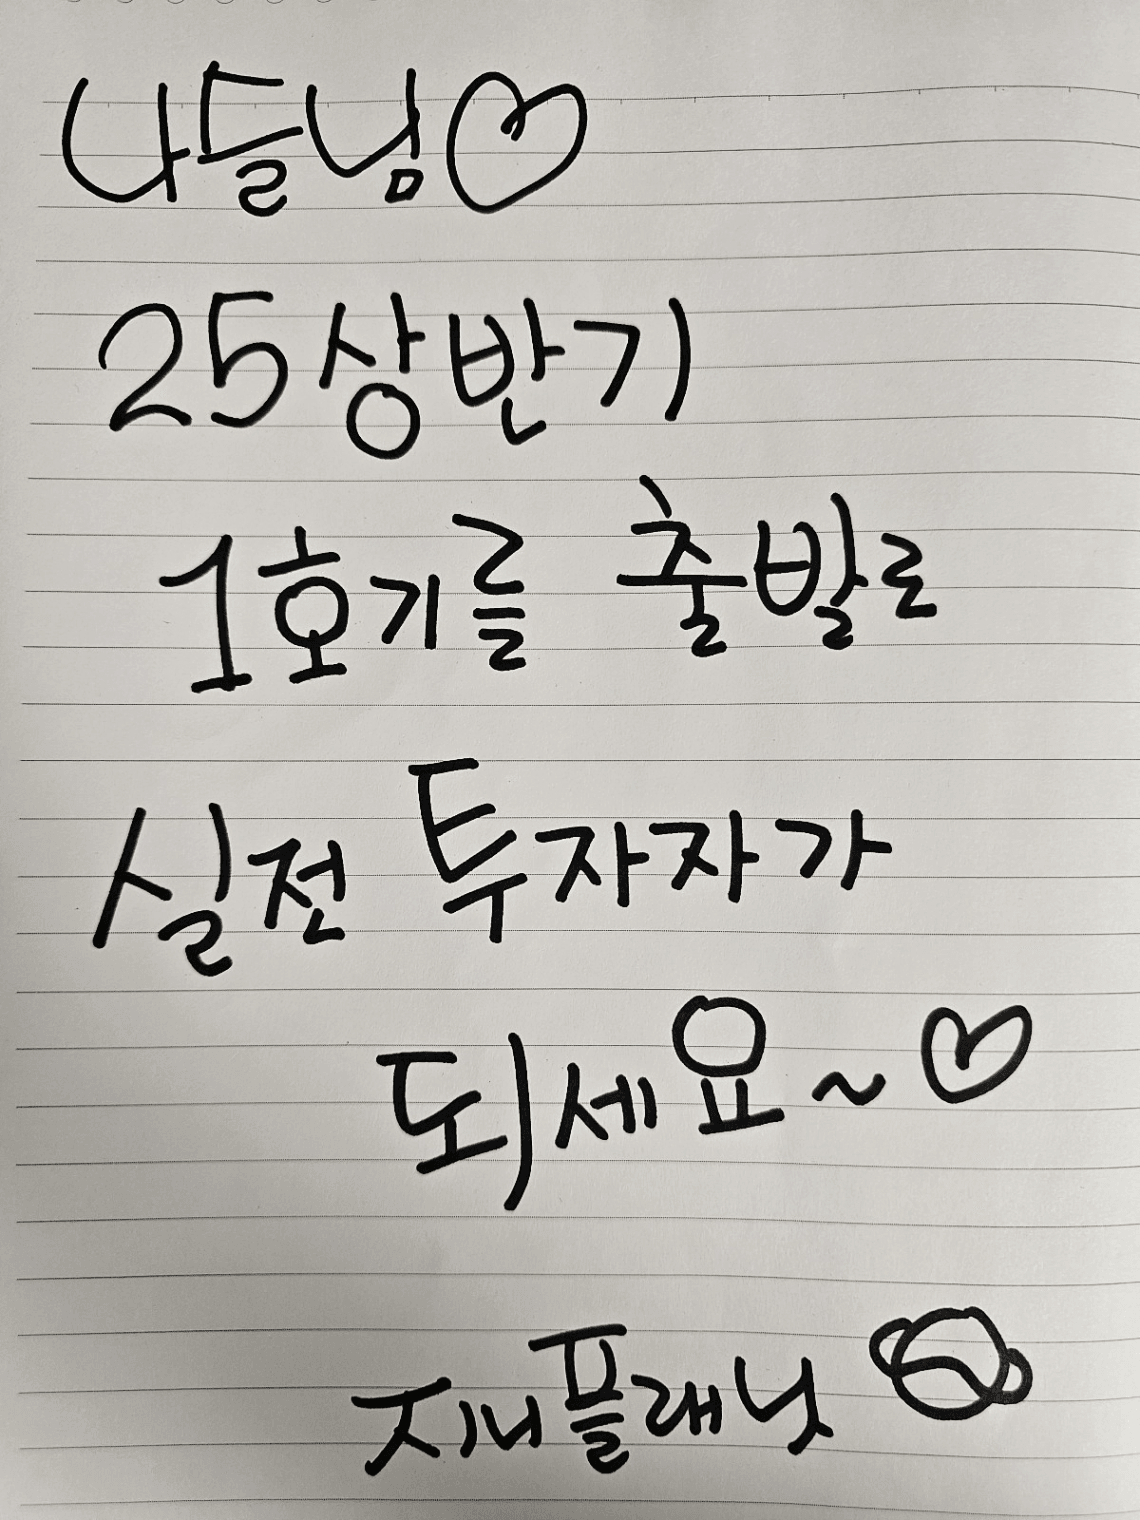 나들님♡
25상반기
1호기를 출발로
실전 투자자가
되세요~♡
지니플래닛